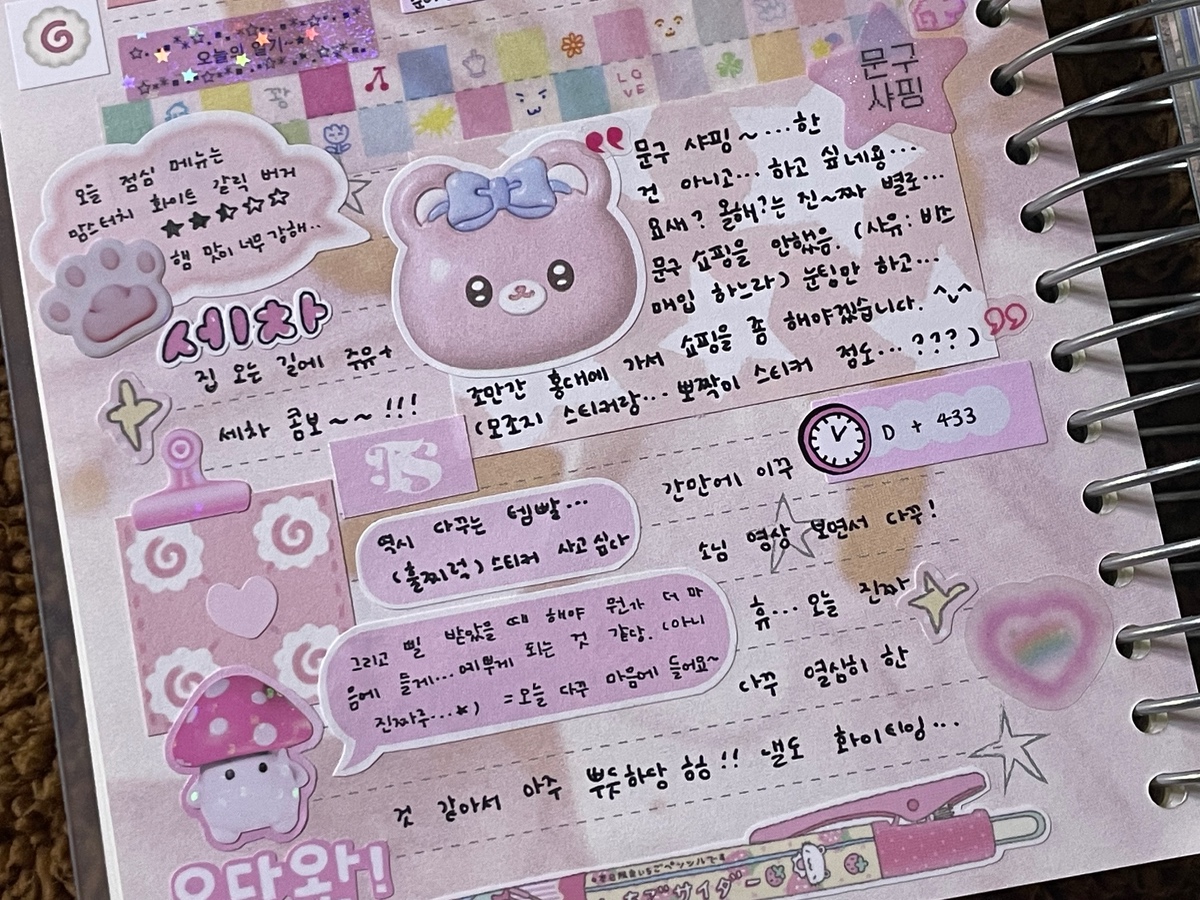 오늘의 일기~
LOVE
문구
샤핑
오늘 점심 메뉴는
맘스터치 화이트 갈릭 버거
★★☆☆☆
햄 맛이 너무 강해..
세차
집 오는 길에 주유+
세차 콤보~~!!!
문구 샤핑~...한
건 아니고... 하고 싶네용...
요새? 올해?는 진~짜 별로...
문구 쇼핑을 안했음. (사유: 비즈
매입 하느라) 눈팅만 하고...
조만간 홍대에 가서 쇼핑을 좀 해야겠습니다. ^^
(모조지 스티커랑... 뽀짝이 스티커 정도...???)
D + 433
역시 다꾸는 템빨...
(훌쩌럭) 스티커 사고 싶다
그리고 삘 받았을 때 해야 뭔가 더 마
음에 들게... 예쁘게 되는 것 같당. (아니
진짜루...★) = 오늘 다꾸 마음에 들어요~
간만에 이꾸
소님 영상 보면서 다꾸!
휴... 오늘 진짜
다꾸 열심히 한
것 같아서 아주 뿌듯하당 ㅎㅎ!! 낼도 화이티잉...